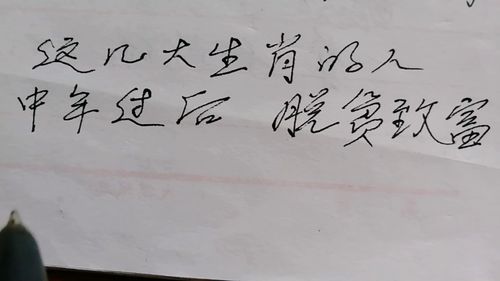 这几大生肖的人
中年过后 脱贫致富